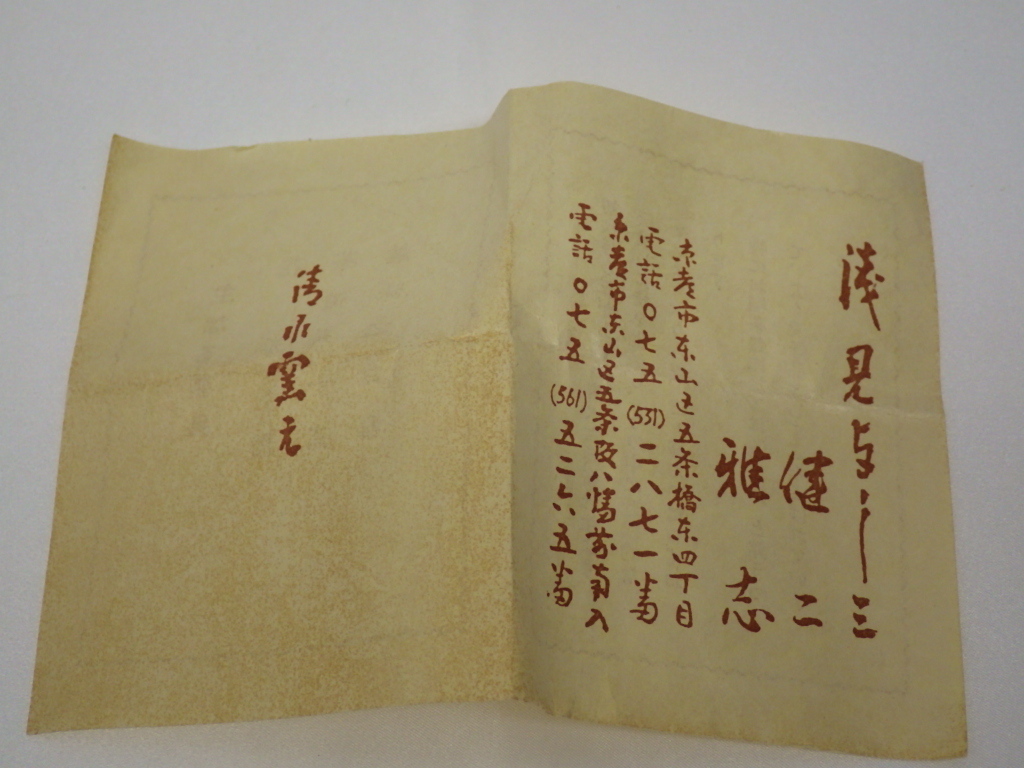 浅見与し三
健二
雅志
京都市东山区五条橋东四丁目
電話〇七五(531)二八七一番
京都市东山区五条坂
電話〇七五(561)五二六五番
清水窯元